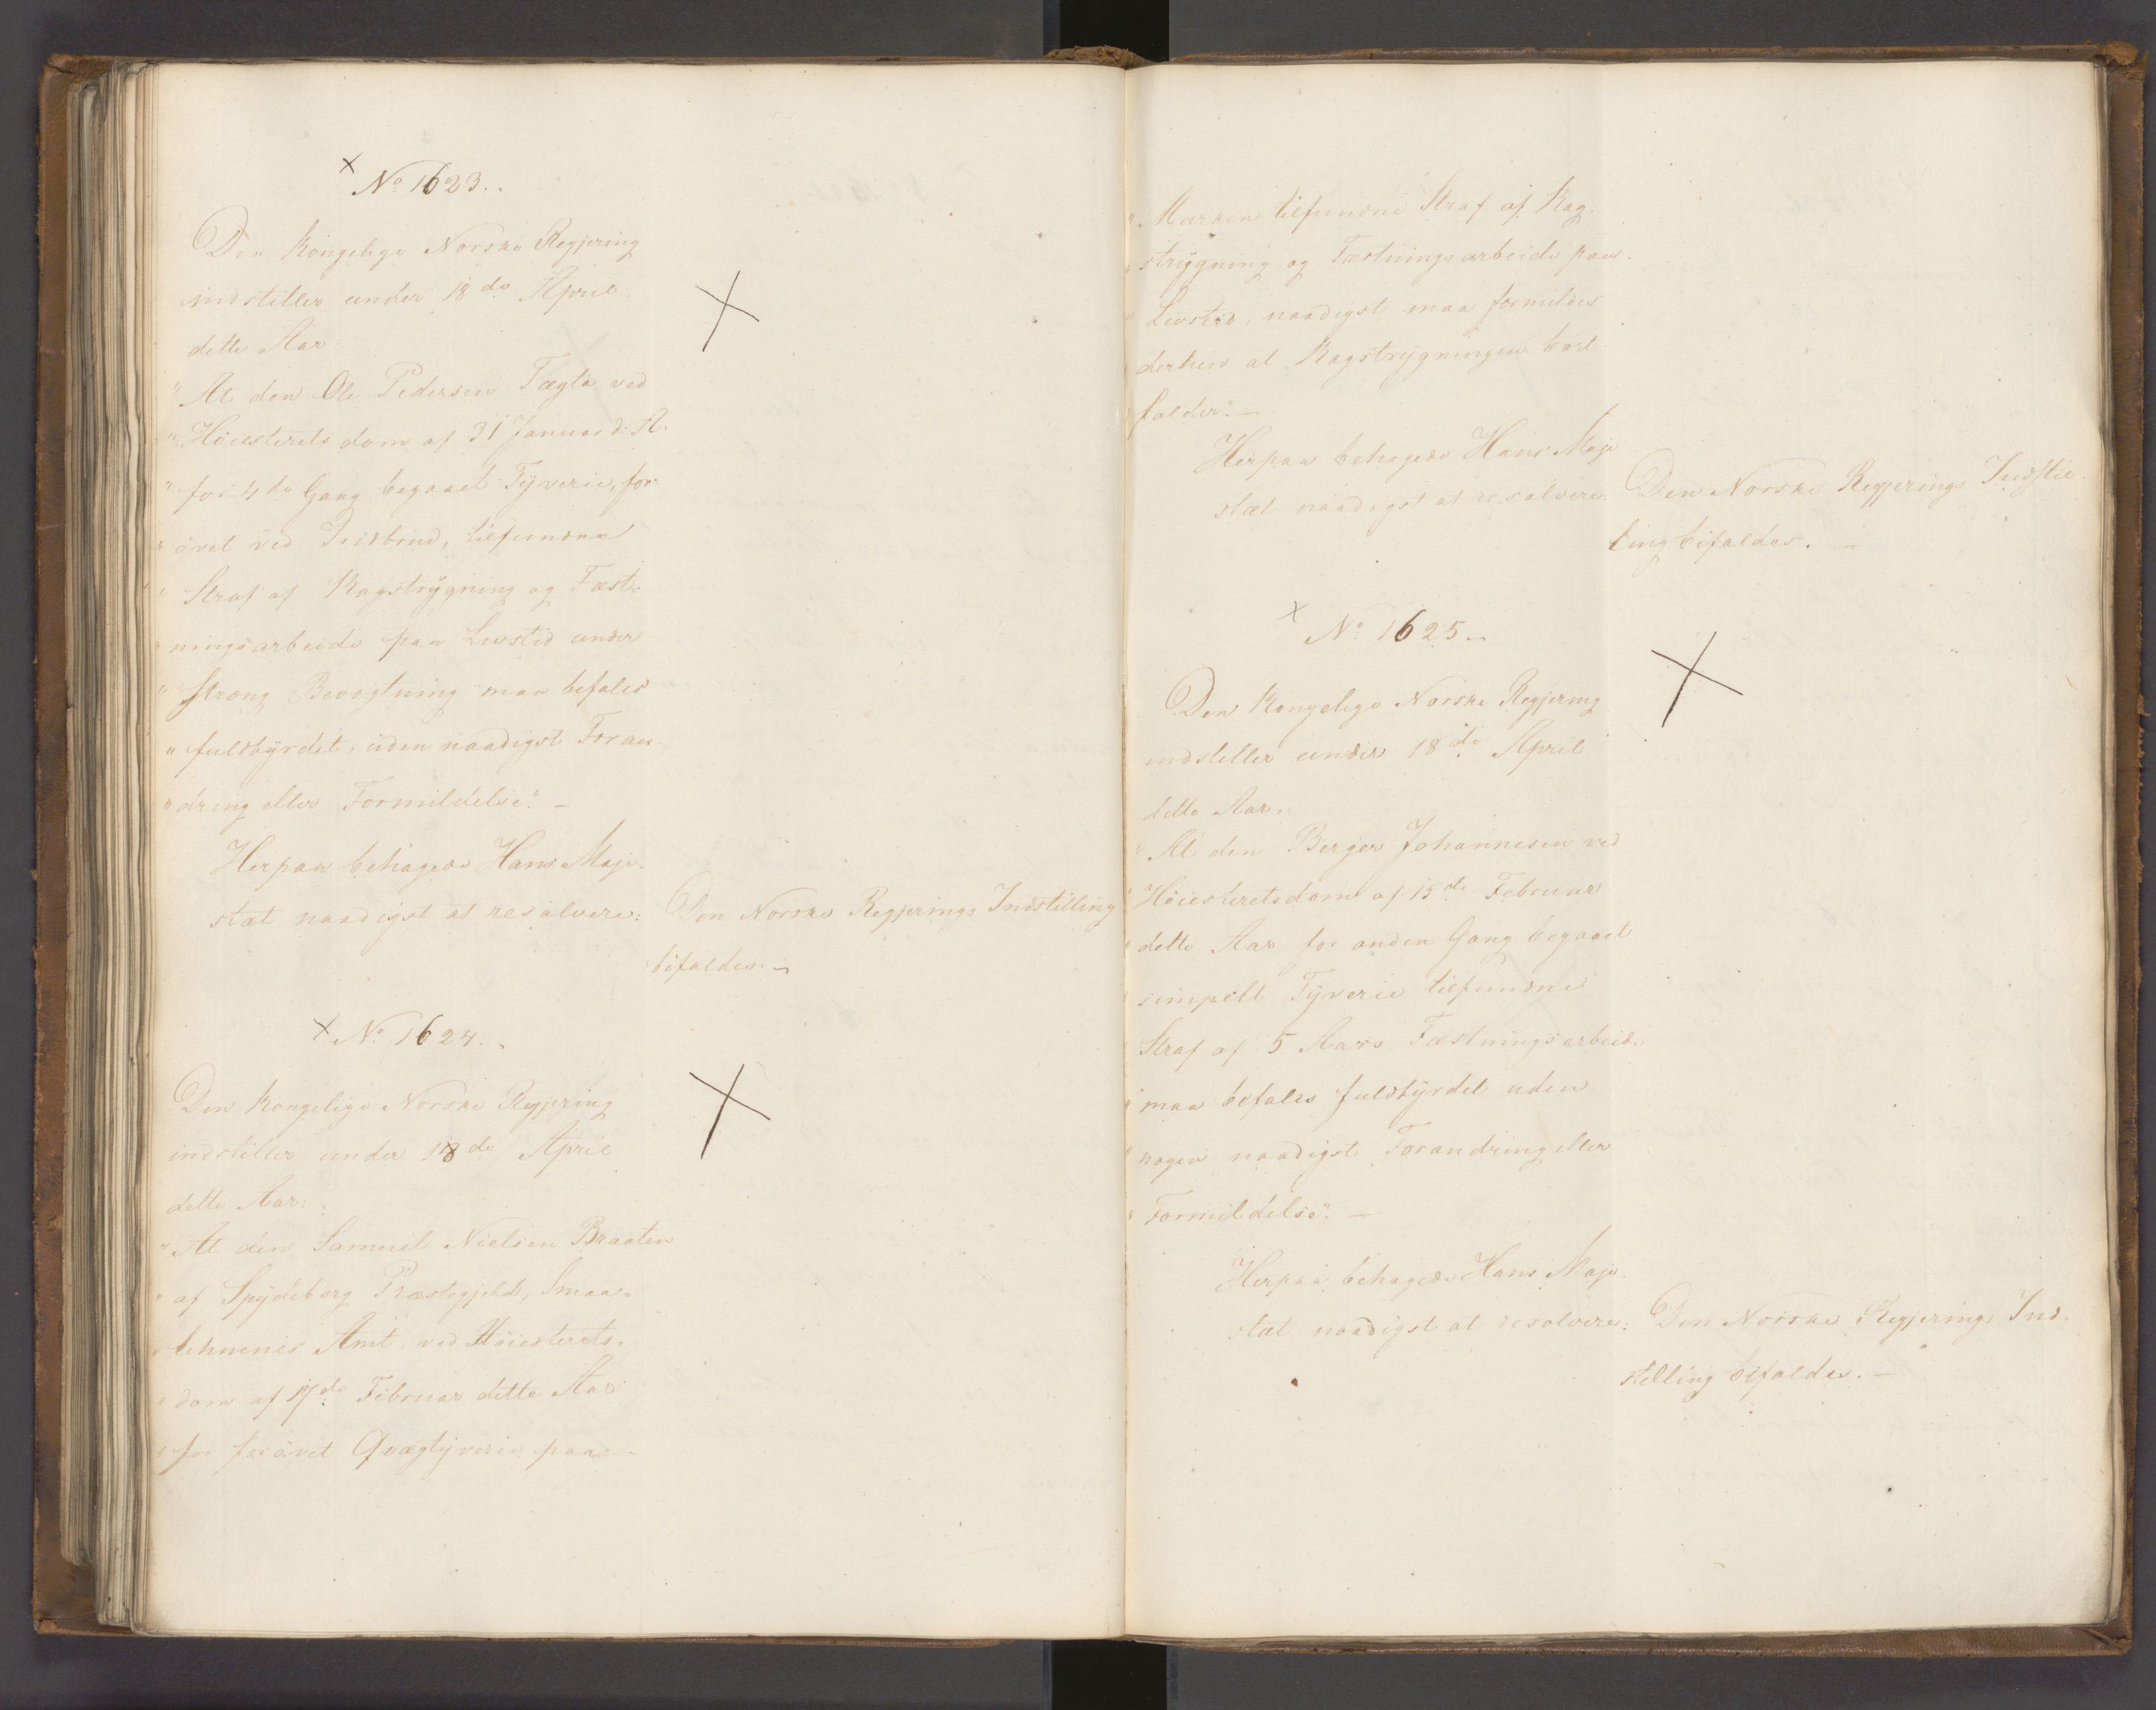 × No 1623.
Den Kongelige Norske Regjering
indstiller under 18de April
dette Aar:
"At den Ole Pedersen Tægta ved
"Høiesterets dom af 31 Januar d: A:
"for 4de Gang begaaet Tyverie, for:
"øvet ved Indbrud, tilfundne
"Straf af Kagstrygning og Fæst:
"ningsarbeide paa Livstid under
"streng Bevogtning maa befales
"fuldbyrdet, uden naadigst Foran
"dring eller Formildelse". –
Herpaa behagede Hans Maje:
stæt naadigst at resolvere: Den Norske Regjerings Indstilling
bifaldes. –
× No 1624.
Den Kongelige Norske Regjering
indstiller under 18de April
dette Aar:
"At den Samuel Nielsen Braaten
"af Spydeberg Præstegjeld, Smaa-
"lehnenes Amt, ved Høiesterets-
"dom af 17de Februar dette Aar
"for forøvet Qvægtyverie paa
"Marken tilfundne Straf af Kag-
"strygning og Fæstningsarbeide paa
"Livstid, naadigst maa formildes
derhen at Kagstrygningen bort-
falder". –
Herpaa behagede Hans Maje
stæt naadigst at resolvere: Den Norske Regjerings Indstil
ling bifaldes. –
× No 1625 –
Den Kongelige Norske Regjering
indstiller under 18de April
dette Aar.
"At den Berger Johannesen ved
"Høiesteretsdom af 15de Februar
"dette Aar for anden Gang begaaet
"simpelt Tyverie tilfundne
Straf af 5 Aars Fæstningsarbeide
"maa befales fuldbyrdet uden
"nogen naadigst Forandring eller
"Formildelse". –
Herpaa behagede Hans Maje
stæt naadigst at resolvere: Den Norske Regjerings Ind-
stilling bifaldes. –